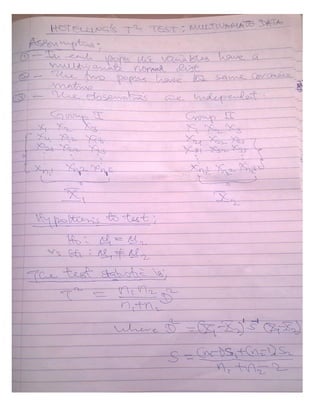 HOTELLING'S T² TEST: MULTIVARIATE DATA
Assumptions:
① – In each popn the variables have a
multivariate normal dist
② – The two popns have the same covariance
matrix
③ – The observations are independent.
Group I Group II
X₁ X₂ X₃ X₁ X₂ X₃
X₁₁ X₁₂ X₁₃ X₁₁ X₁₂ X₁₃
X₂₁ X₂₂ X₂₃ X₂₁ X₂₂ X₂₃
X̄₁ X̄₂
Hypothesis to test;
H₀: μ₁ = μ₂
vs H₁: μ₁ ≠ μ₂
The test statistic is;
T² = n₁n₂/n₁+n₂ D²
where D² = (X̄₁-X̄₂)' S⁻¹ (X̄₁-X̄₂)
S = (n₁-1)S₁+(n₂-1)S₂
n₁ + n₂ - 2